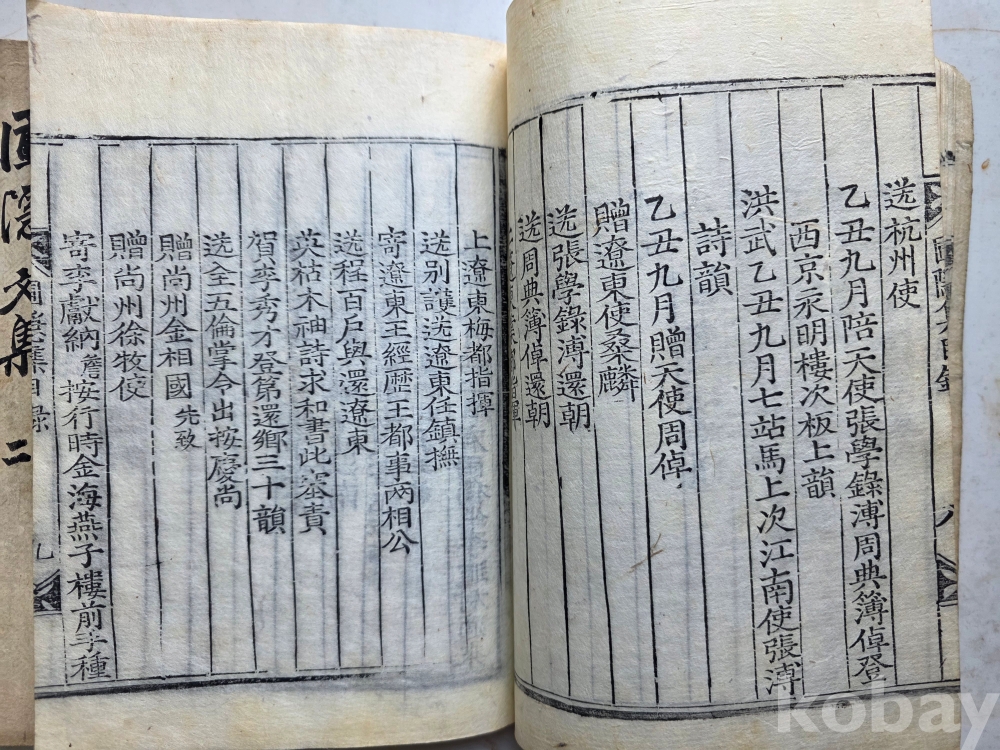 送杭州使
乙丑九月陪天使張學錄溥周典簿倬登
西京永明樓次板上韻
洪武乙丑九月七站馬上次江南使張溥
詩韻
乙丑九月贈天使周倬
贈遼東使桑麟
送張學錄溥還朝
送周典簿倬還朝
上遼東梅都指揮
送別護送遼東任鎮撫
寄遼東王經歷王都事兩相公
送程百戶與還遼東
英枯木袖詩求和書此塞責
賀李秀才登第還鄉三十韻
送全五倫掌令出按慶尚
贈尚州金相國 先致
贈尚州徐牧使
寄李獻納 詹 按行時金海燕子樓前手種
圃隱集目錄
九
八
文集 二
kobay